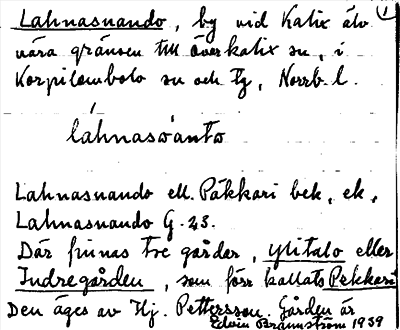 Lahnasnando, by vid Kalix älv 1
nära gränsen till Överkalix sn, i
Korpilombolo sn och tg, Norrb. l.
láhnasẃanto
Lahnasnando ell. Päkkäri bek, ek,
Lahnasnando G. 23.
Där finnas tre gårdar, Ylitalo eller
Indregården, som förr kallats Pekkari
Den äges av Hj. Pettersson. Gården är
Edvin Brännström 1939